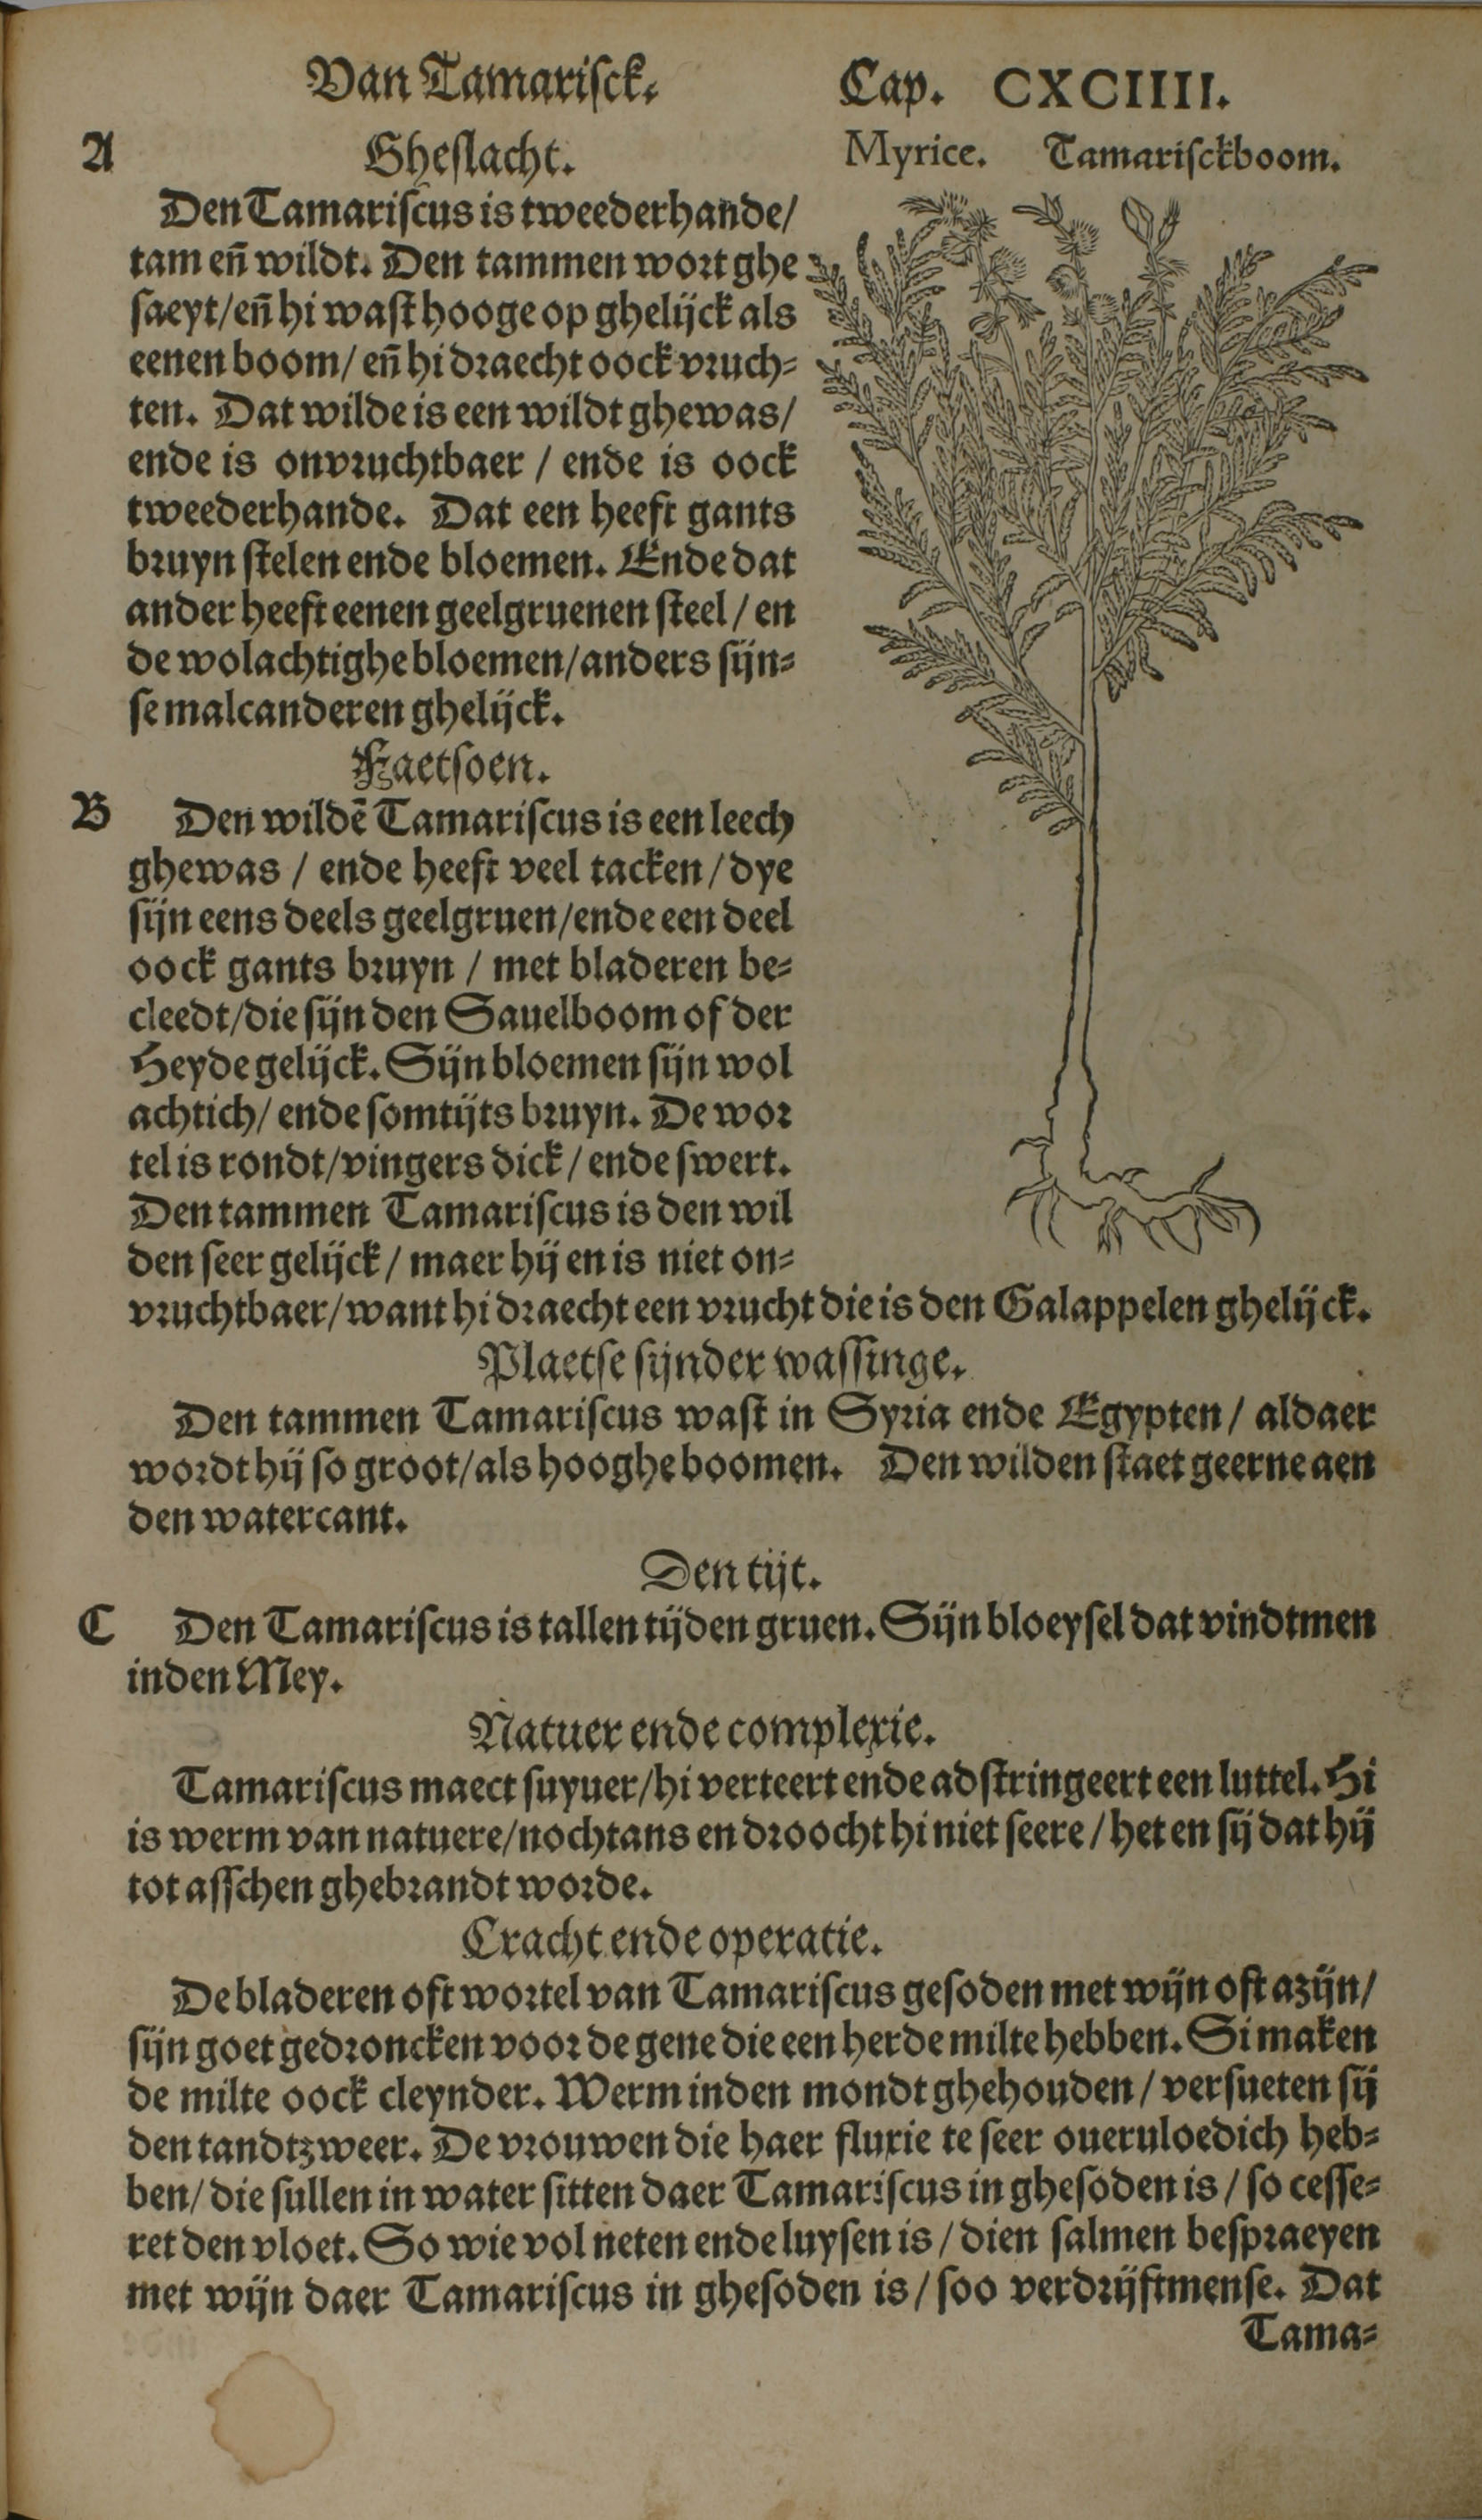 Van Tamarisck.
Cap. CXCIIII.
A
Gheslacht.
Myrice. Tamarisckboom.
Den Tamariscus is tweederhande/
tam en̄ wildt. Den tammen wort ghe
saeyt/en̄ hi wast hooge op ghelijck als
eenen boom/ en̄ hi draecht oock vruch-
ten. Dat wilde is een wildt ghewas/
ende is onvruchtbaer / ende is oock
tweederhande. Dat een heeft gants
bruyn stelen ende bloemen. Ende dat
ander heeft eenen geelgruenen steel / en
de wolachtighe bloemen/anders sijn-
se malcanderen ghelijck.
Faetsoen.
B
Den wildē Tamariscus is een leech
ghewas / ende heeft veel tacken/dye
sijn eens deels geelgruen/ende een deel
oock gants bruyn / met bladeren be-
cleedt/die sijn den Sauelboom of der
Heyde gelijck. Sijn bloemen sijn wol
achtich/ ende somtijts bruyn. De wor
tel is rondt/vingers dick / ende swert.
Den tammen Tamariscus is den wil
den seer gelijck / maer hij en is niet on-
vruchtbaer/want hi draecht een vrucht die is den Galappelen ghelijck.
Plaetse sijnder wassinge.
Den tammen Tamariscus wast in Syria ende Egypten/ aldaer
wordt hij so groot/als hooghe boomen. Den wilden staet geerne aen
den watercant.
Den tijt.
C
Den Tamariscus is tallen tijden gruen. Sijn bloeysel dat vindtmen
inden Mey.
Natuer ende complexie.
Tamariscus maect suyuer/hi verteert ende adstringeert een luttel. Hi
is werm van natuere/nochtans en droocht hi niet seere / het en sij dat hij
tot asschen ghebrandt worde.
Cracht ende operatie.
De bladeren oft wortel van Tamariscus gesoden met wijn oft azijn/
sijn goet gedroncken voor de gene die een herde milte hebben. Si maken
de milte oock cleynder. Werm inden mondt ghehouden / versueten sij
den tandtzweer. De vrouwen die haer fluxie te seer oueruloedich heb-
ben/ die sullen in water sitten daer Tamariscus in ghesoden is / so cesse-
ret den vloet. So wie vol neten ende luysen is / dien salmen bespraeyen
met wijn daer Tamariscus in ghesoden is / soo verdrijftmense. Dat
Tama-